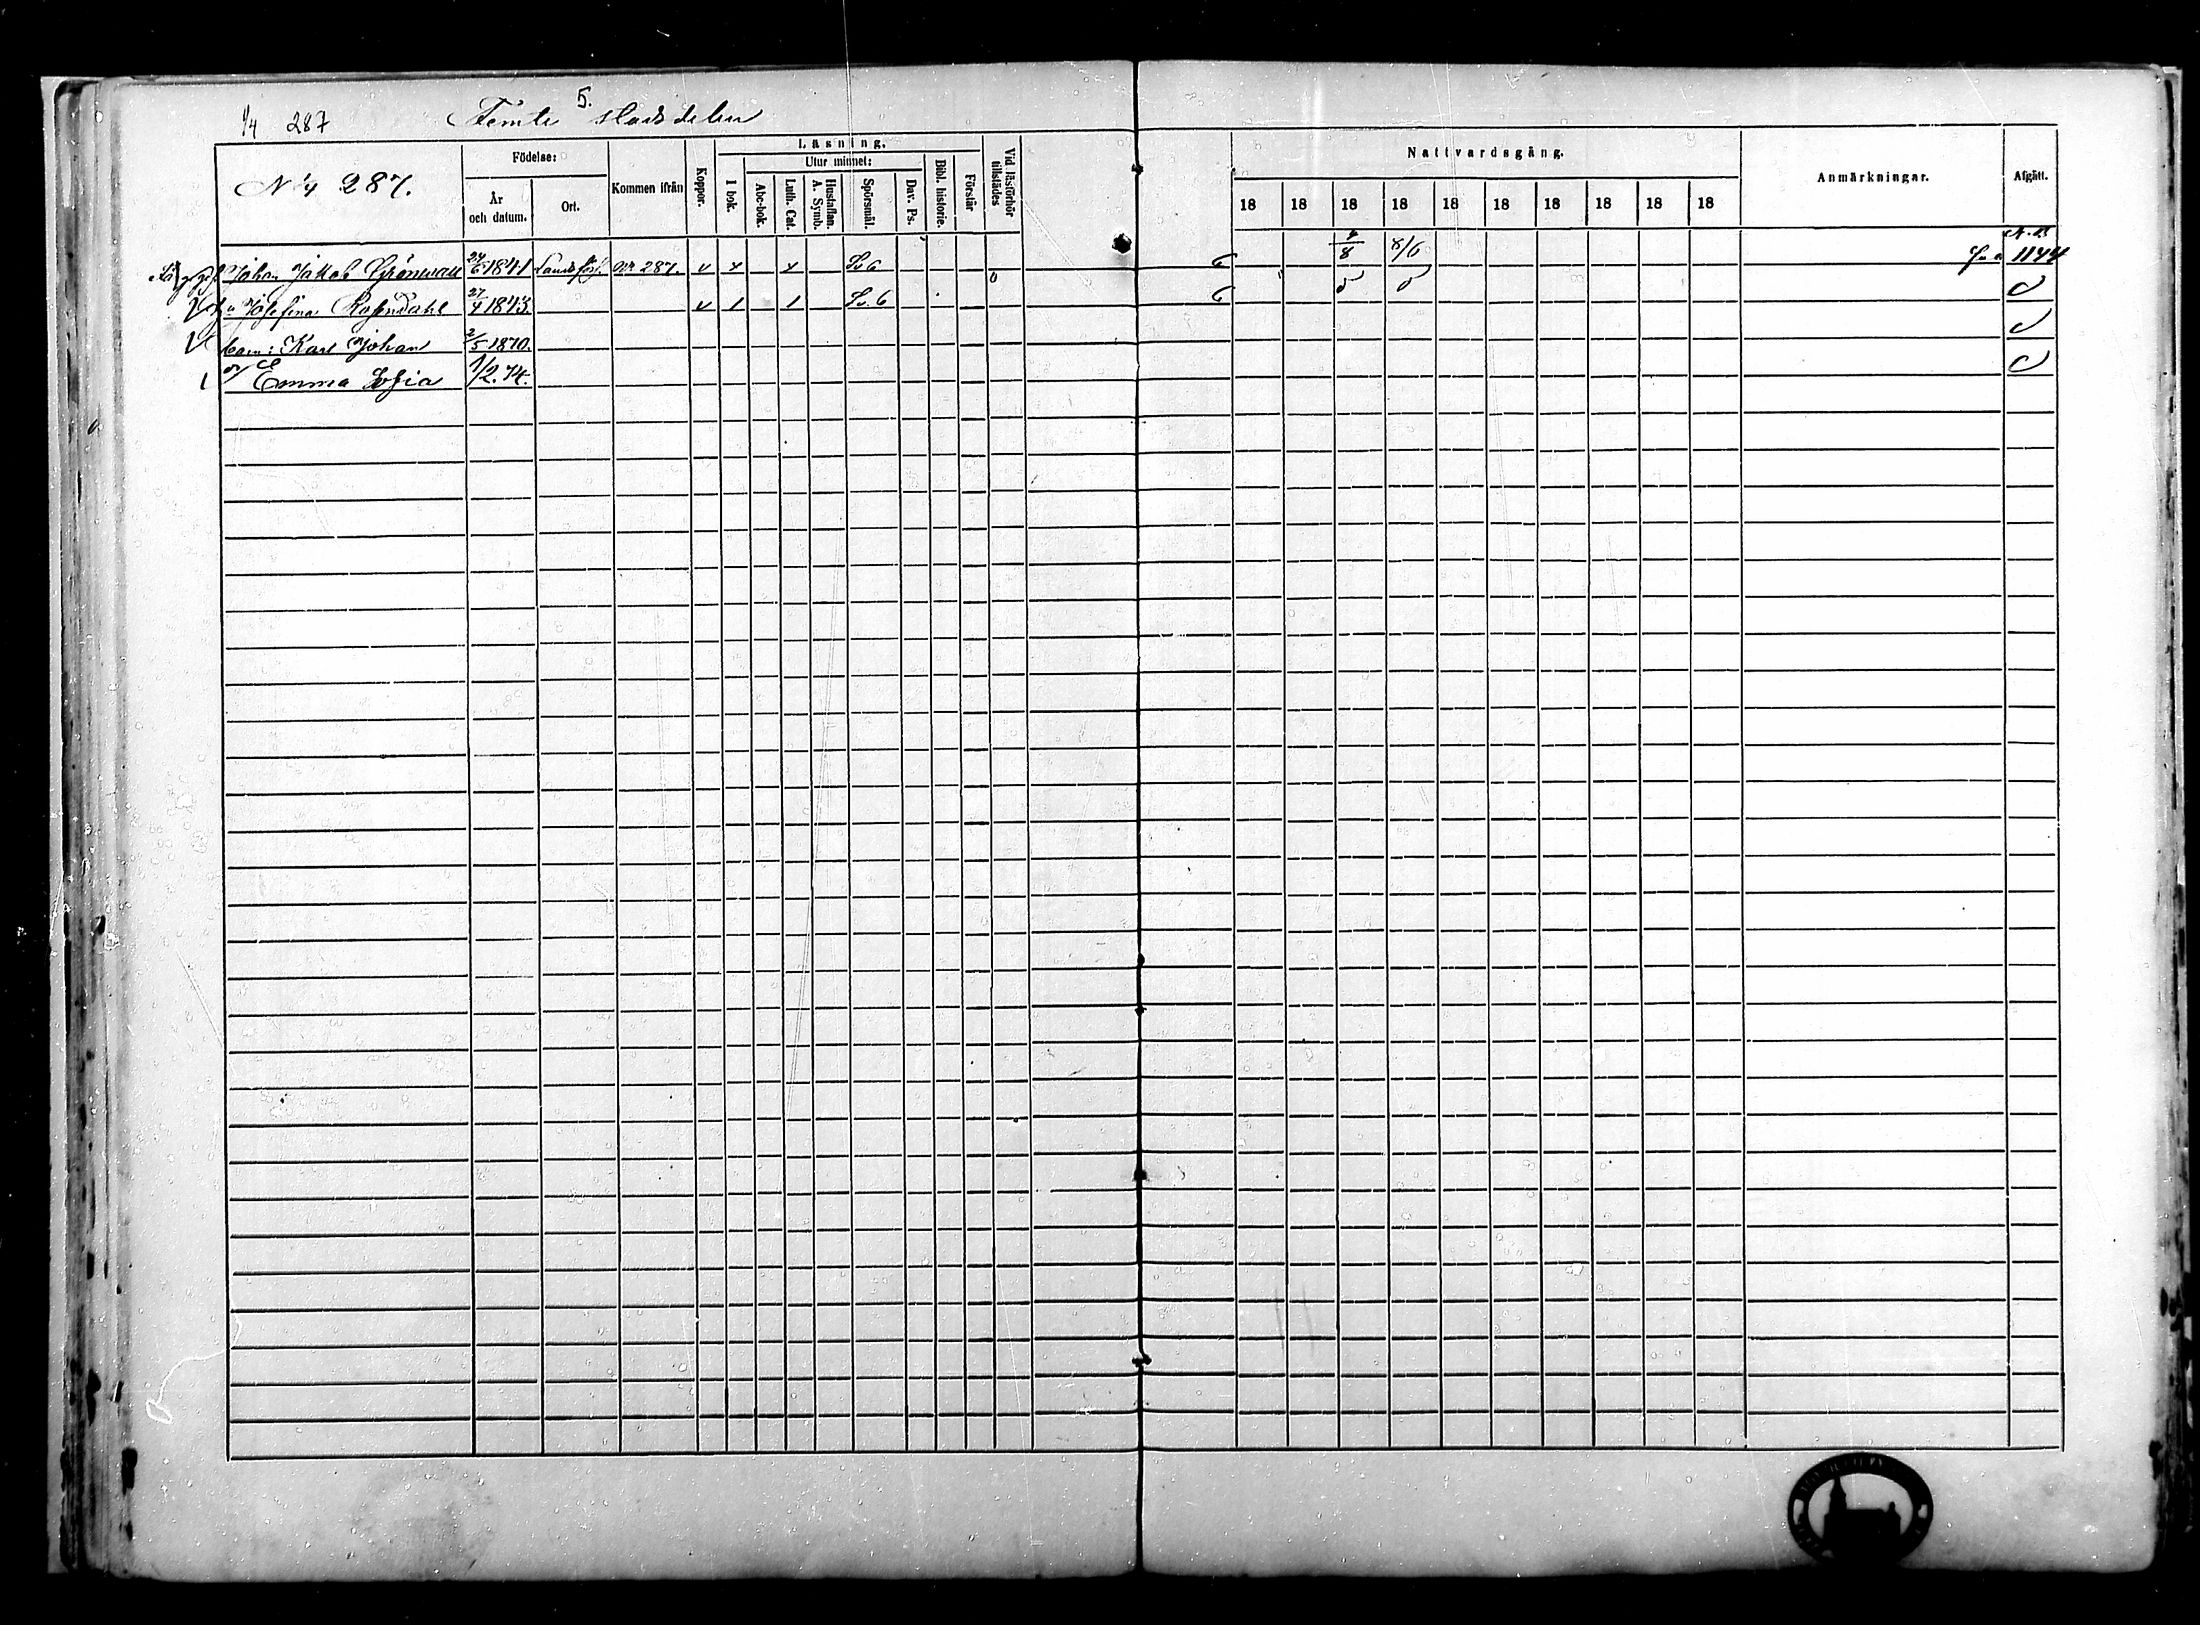 5.
1/4 287 Femte stadsdelen
N 1/4 287.
Födelse:
År och datum.
Ort.
Kommen ifrån
Koppor.
Läsning.
I bok.
Utur minnet:
Abc-bok.
Luth. Cat.
Hustaflan. A. Symb.
Spörsmål.
Dav. Ps.
Bibl. historie.
Förstår
Vid läsförhör tillstädes
Nattvardsgång.
18 18 18 18 18 18 18 18 18 18
Anmärkningar.
Afgått.
Johan Jakob Grönvall 24/6 1841 Landsförs. Nr 287. v x x Sv 6 6 4/8 8/6 1144
Josefina Rosendahl 27/4 1843. v 1 1 Sv. 6 6
barn: Karl Johan 2/5 1870.
Emma Sofia 1/2. 74.